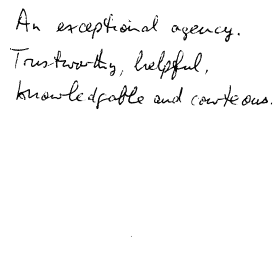 An exceptional agency.
Trustworthy, helpful,
knowledgable and courteous.